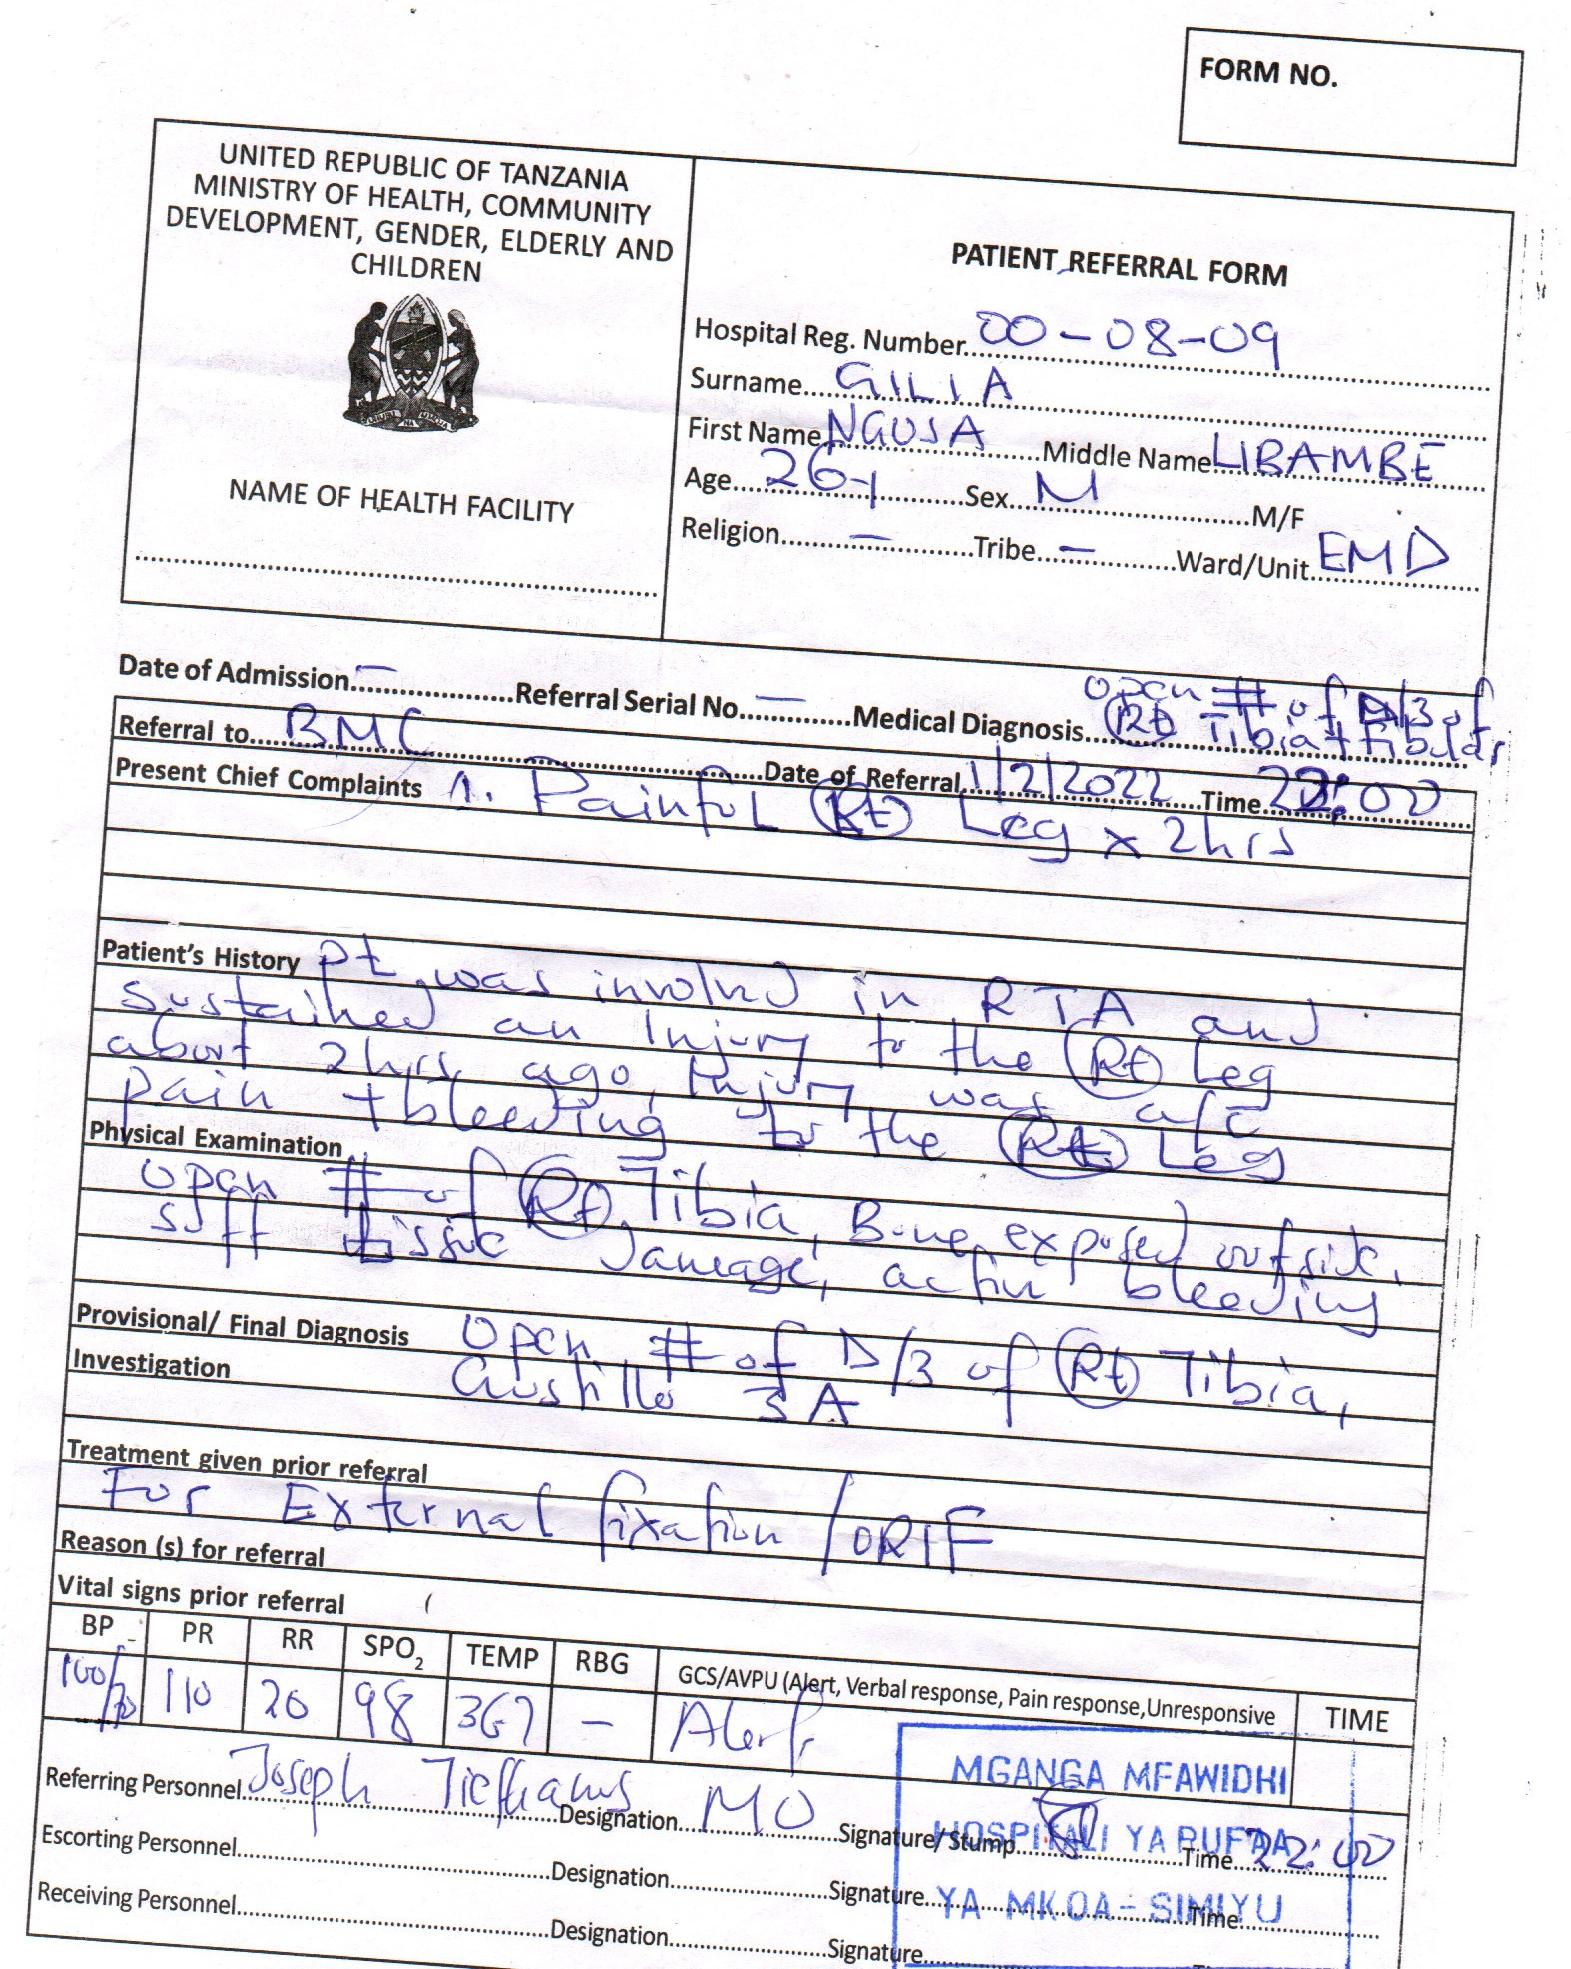 FORM NO.
UNITED REPUBLIC OF TANZANIA
MINISTRY OF HEALTH, COMMUNITY
DEVELOPMENT, GENDER, ELDERLY AND
CHILDREN
NAME OF HEALTH FACILITY
PATIENT REFERRAL FORM
Hospital Reg. Number 00-08-09
Surname GILIA
First Name NGUSA Middle Name LIBAMBE
Age 26y Sex M M/F
Religion — Tribe — Ward/Unit EMD
Date of Admission — Referral Serial No. — Medical Diagnosis open # of D/3 of
(Rt) Tibia + Fibular
Referral to BMC Date of Referral 1/2/2022 Time 22:00
Present Chief Complaints 1. Painful (Rt) Leg x 2hrs
Patient's History pt was involved in RTA and
sustained an Injury to the (Rt) Leg
about 2hrs ago, Injury was a/c
pain + bleeding to the (Rt) Leg
Physical Examination
open # of (Rt) Tibia, Bone exposed outside,
soft tissue damage, active bleeding
Provisional/ Final Diagnosis open # of D/3 of (Rt) Tibia,
Investigation Gustillo 3A
Treatment given prior referral
For External fixation /ORIF
Reason (s) for referral
Vital signs prior referral
BP PR RR SPO2 TEMP RBG GCS/AVPU (Alert, Verbal response, Pain response,Unresponsive TIME
100/70 110 20 98 367 — Alert
Referring Personnel Joseph Designation MO Signature/ Stump Time 22:00
Escorting Personnel Designation Signature Time
Receiving Personnel Designation Signature
MGANGA MFAWIDHI
HOSPITALI YA RUFAA
YA MKOA - SIMIYU